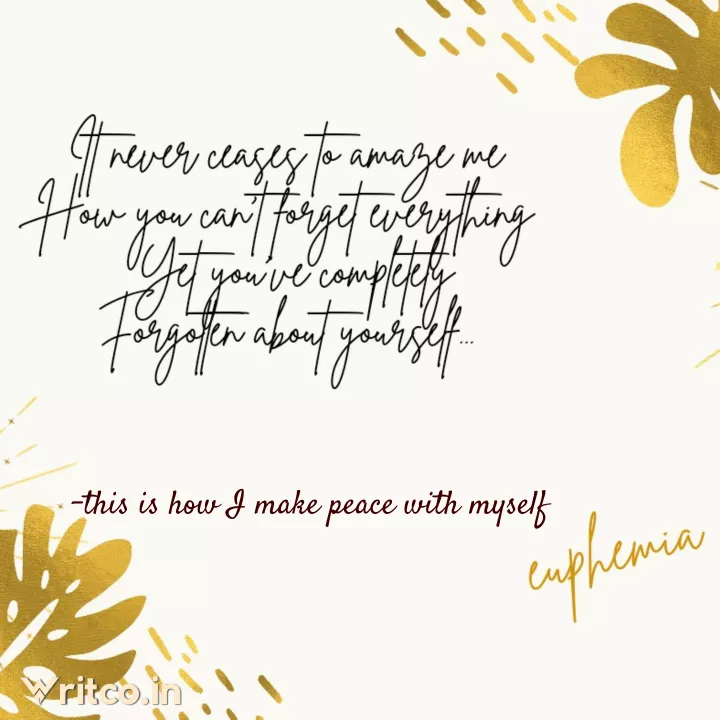 It never ceases to amaze me
How you can't forget everything
Yet you've completely
Forgotten about yourself...
-this is how I make peace with myself
euphemia
Writco.in